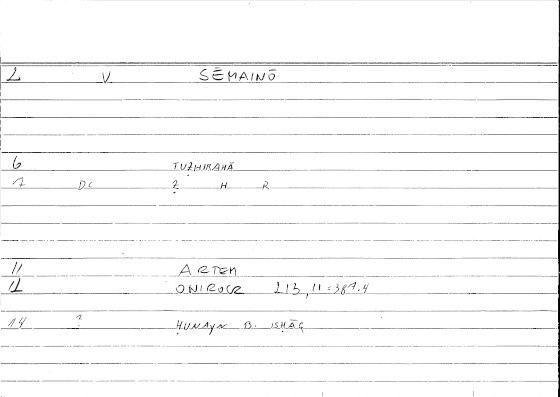 2 V SĒMAINŌ
6 TUẒHIRANĀ
7 DC Ẓ H R
11 ARTEM
12 ONIROCR 213,11=387.4
14 ? ḤUNAYN B. ISḤĀQ